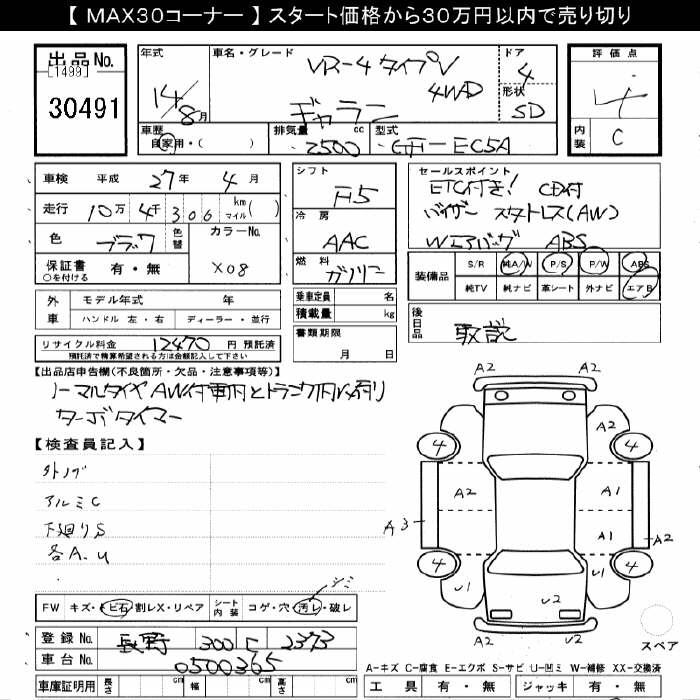 【 MAX30コーナー 】 スタート価格から30万円以内で売り切り
出品 No.
[1499]
30491
年式
14/8月
車名・グレード
VR-4 タイプV
4WD
ギャラン
ドア
4
形状
SD
評価点
4
内装
C
車歴
自家用・( )
排気量 cc
2500
型式
GH-EC5A
車検 平成 27年 4月
走行 10万 4千 306 km マイル( )
色 ブラック 色替
カラーNo.
X08
保証書 有・無
○を付ける
シフト
F5
冷房
AAC
燃料
ガソリン
セールスポイント
ETC付き! CD付
バイザー スタットレス(AW)
Wエアバッグ ABS
装備品
S/R 純A/W P/S P/W ABS
純TV 純ナビ 革シート 外ナビ エアB
外車
モデル年式 年
ハンドル 左・右 ディーラー・並行
乗車定員 名
積載量 kg
書類期限
月 日
後日品
取説
リサイクル料金 12470 円 預託済
預託済で精算希望される方は金額記入して下さい
【出品店申告欄(不良箇所・欠品・注意事項等)】
ノーマルタイヤAW付車内とトランク内に有り
ターボタイマー
【検査員記入】
アルミC
下廻りS
各A.U
シミ
FW キズ・トビ石・割レX・リペア
シート内装 コゲ・穴・汚レ・破レ
登録 No. 長野 300 2373
車台 No. 0500365
車庫証明用 長さ cm 幅 cm 高さ cm
A2
A2
4
4
A2
A1
A3
A2
A1
4
4
U1
U1
U2
A2
A2
スペア
A-キズ C-腐食 E-エクボ S-サビ U-凹ミ W-補修 XX-交換済
工具 有・無 ジャッキ 有・無